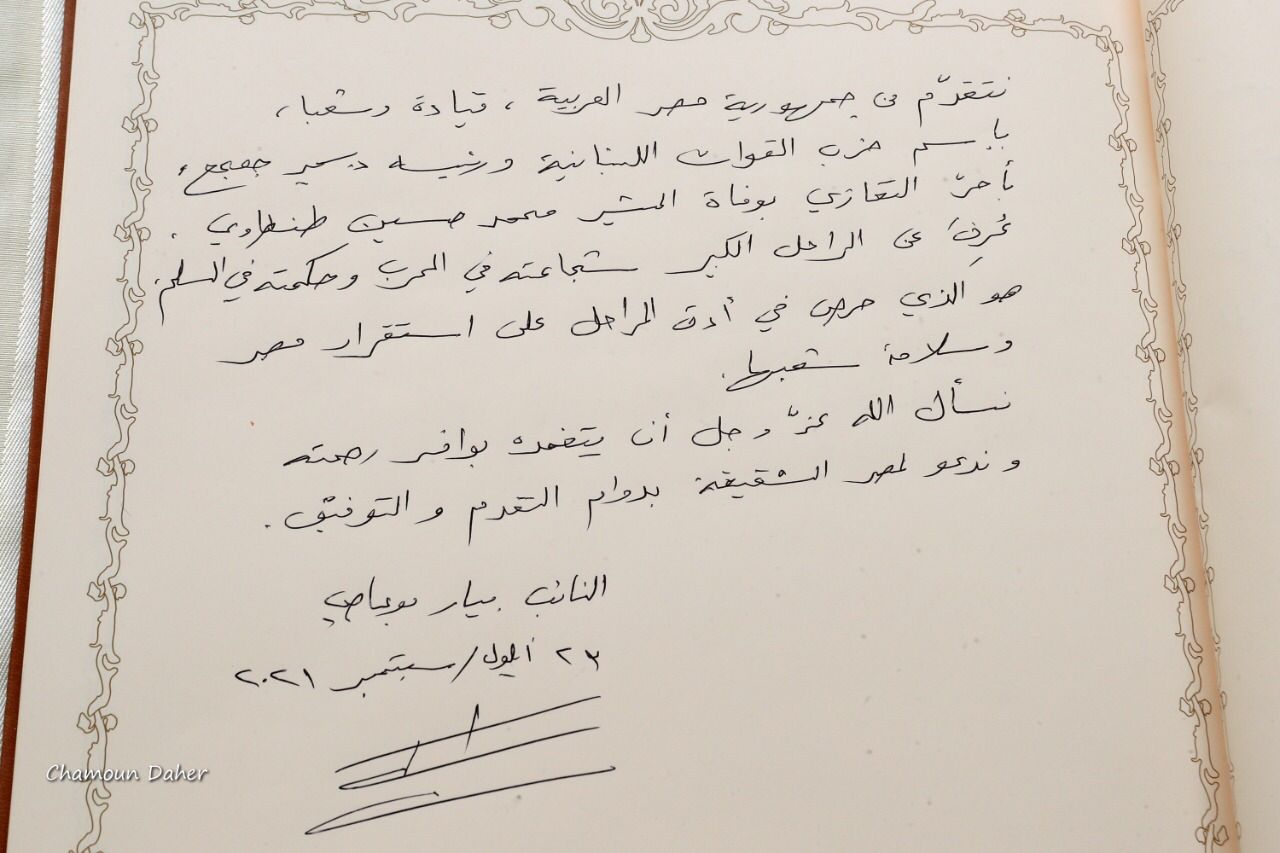 نتقدّم من جمهورية مصر العربية، قيادة وشعبا،
بإسم حزب القوات اللبنانية ورئيسه د. سمير جعجع،
بأحرّ التعازي بوفاة المشير محمد حسين طنطاوي.
عُرِفَ عن الراحل الكبير شجاعته في الحرب وحكمته في السلم.
هو الذي حرص في أدق المراحل على استقرار مصر
وسلامة شعبها.
نسأل الله عزّ وجل أن يتغمده بوافر رحمته
وندعو لمصر الشقيقة بدوام التقدم والتوفيق.
النائب بيار بوعاصي
٢٣ أيلول/سبتمبر ٢٠٢١
Chamoun Daher